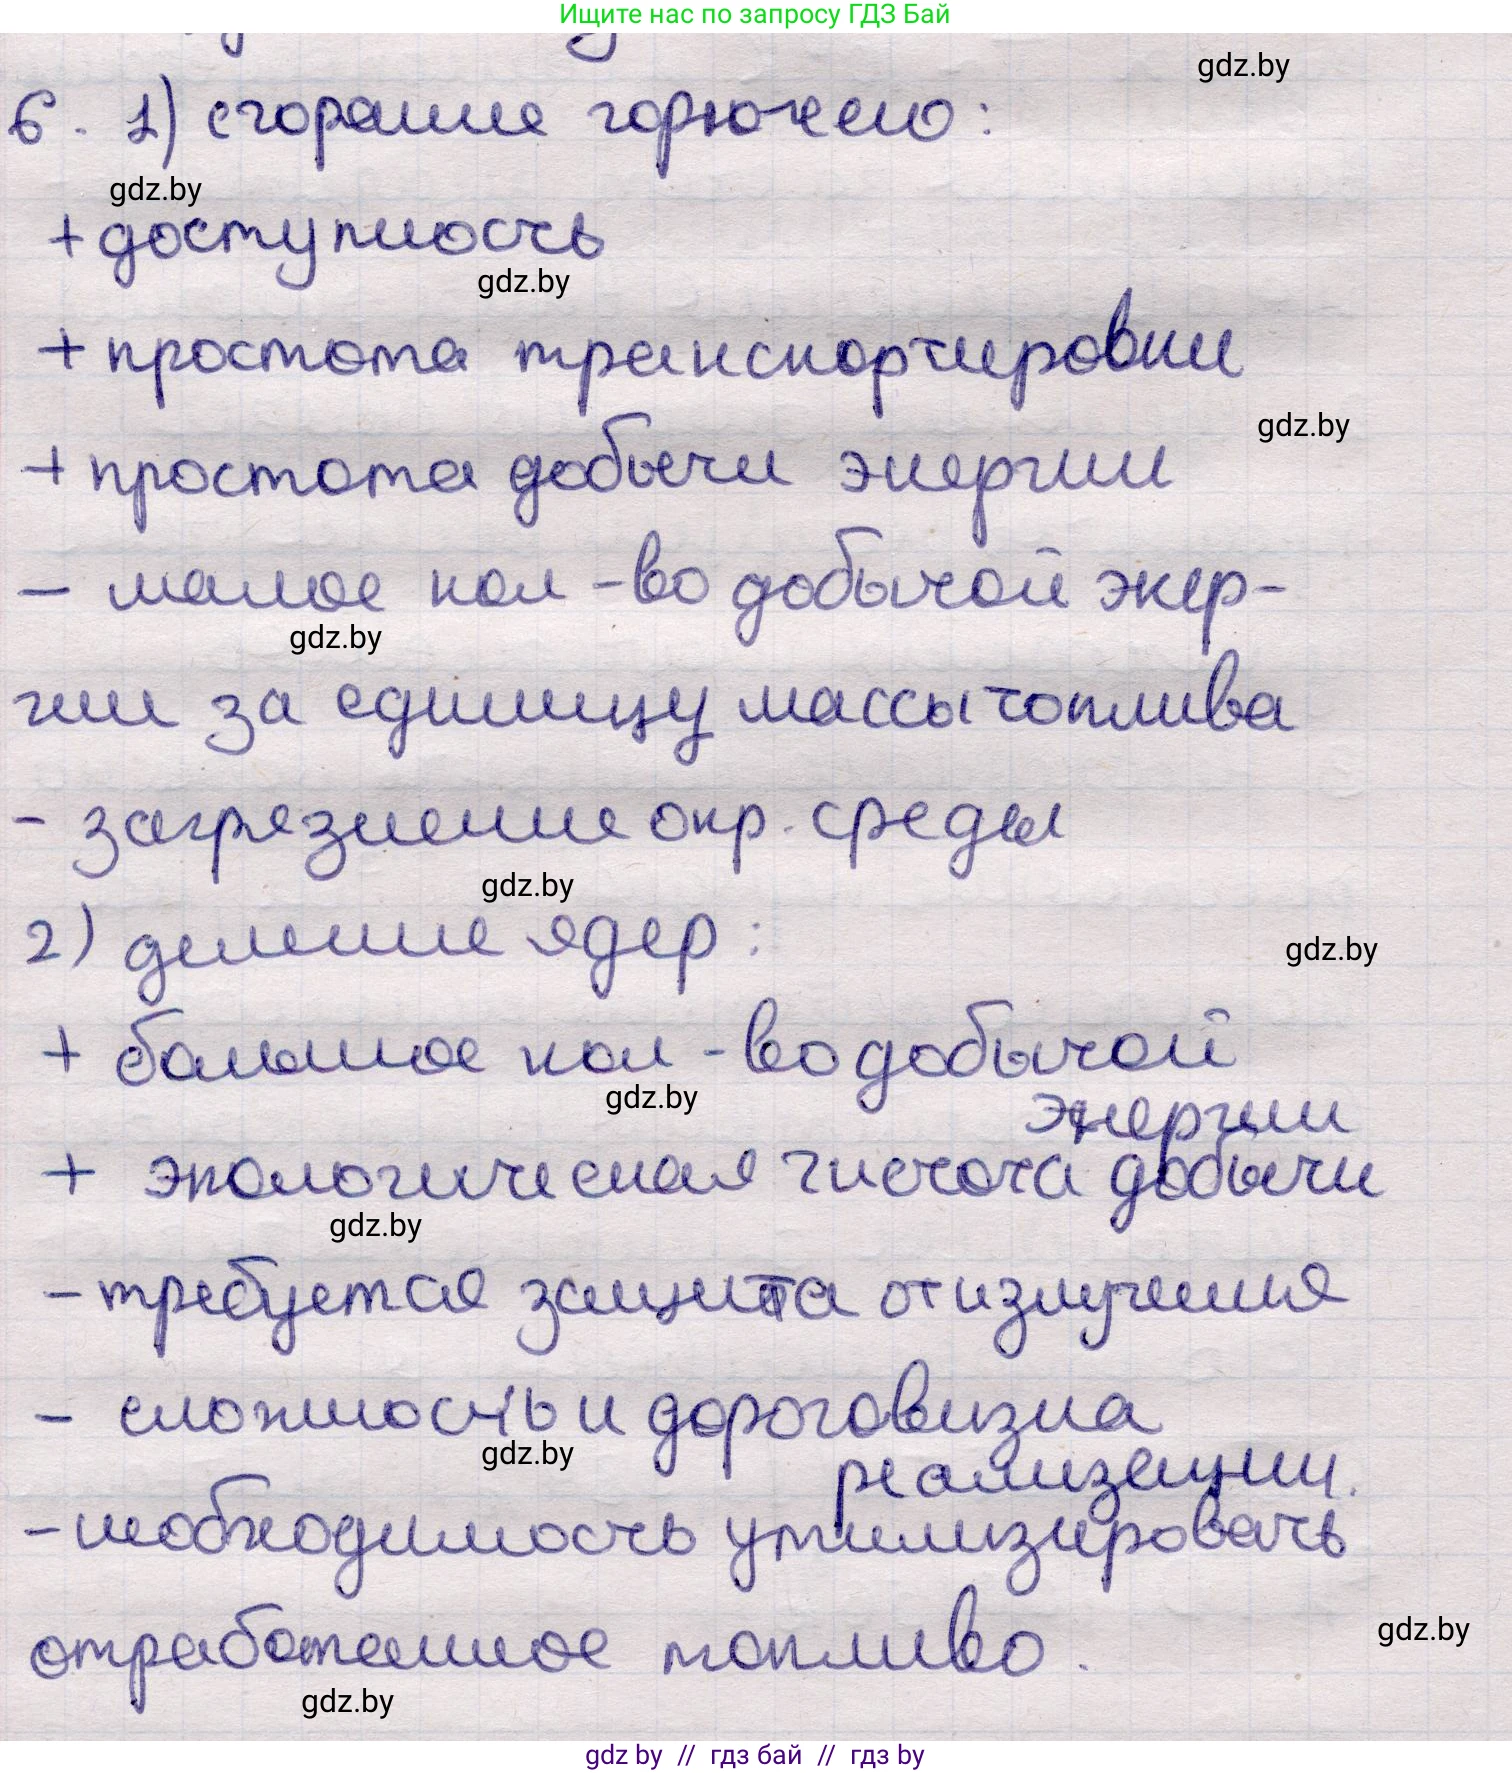 Ищите нас по запросу ГДЗ Бай
gdz.by
6. 1) сгорание горючего:
gdz.by
+ доступность
gdz.by
+ простота транспортировки
gdz.by
+ простота добычи энергии
- малое кол-во добычой энер-
gdz.by
гии за единицу массы топлива
- загрязнение окр. среды
gdz.by
2) деление ядер:
gdz.by
+ большое кол-во добычой
энергии
gdz.by
+ экологическая чистота добычи
gdz.by
- требуется защита от излучения
- сложность и дороговизна
gdz.by
реализации.
- необходимость утилизировать
отработанное топливо.
gdz.by
gdz.by
gdz by // гдз бай // гдз by